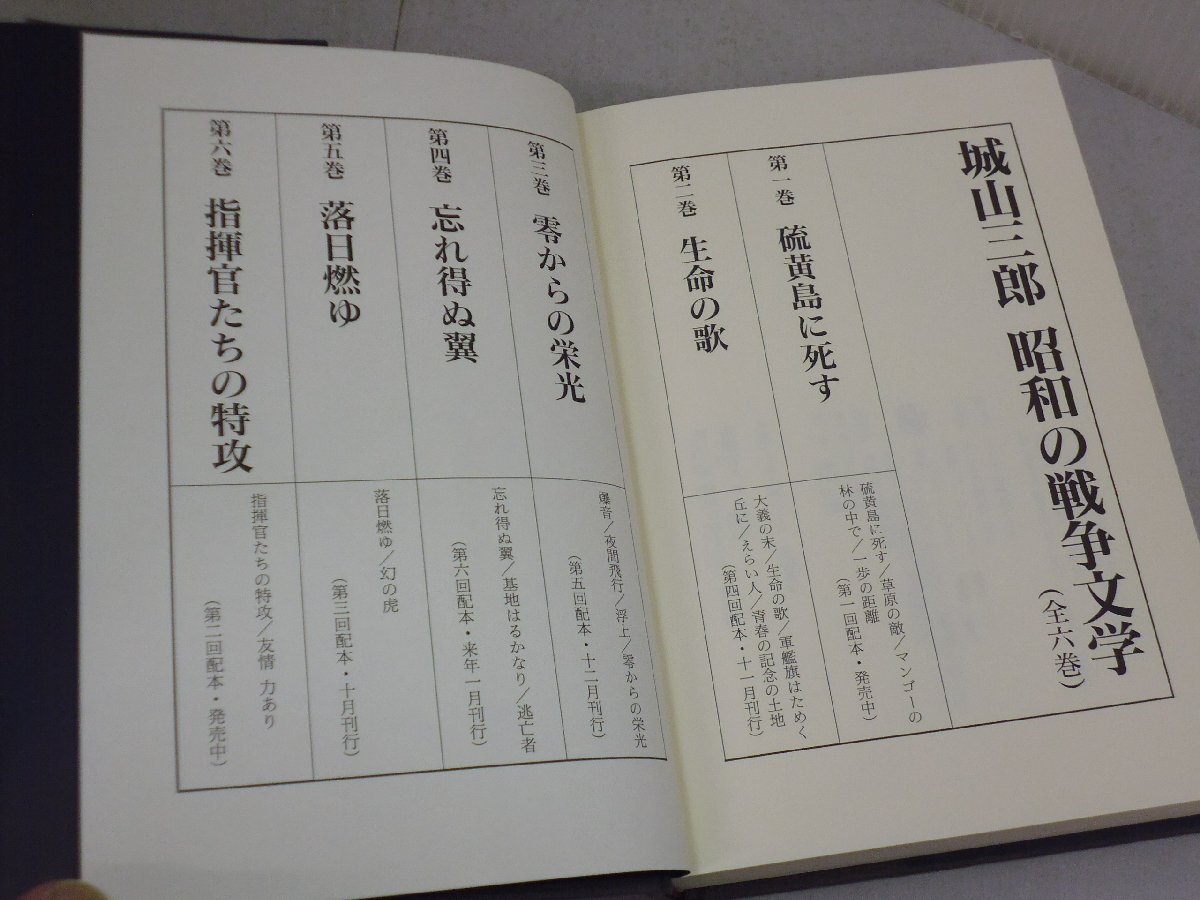 城山三郎 昭和の戦争文学(全六巻)
第一巻 硫黄島に死す
硫黄島に死す/草原の敵/マンゴーの
林の中で/一歩の距離
(第一回配本・発売中)
第二巻 生命の歌
大義の末/生命の歌/軍艦旗はためく
丘に/えらい人/青春の記念の土地
(第四回配本・十一月刊行)
第三巻 零からの栄光
爆音/夜間飛行/浮上/零からの栄光
(第五回配本・十二月刊行)
第四巻 忘れ得ぬ翼
忘れ得ぬ翼/基地はるかなり/逃亡者
(第六回配本・来年一月刊行)
第五巻 落日燃ゆ
落日燃ゆ/幻の虎
(第三回配本・十月刊行)
第六巻 指揮官たちの特攻
指揮官たちの特攻/友情 力あり
(第二回配本・発売中)